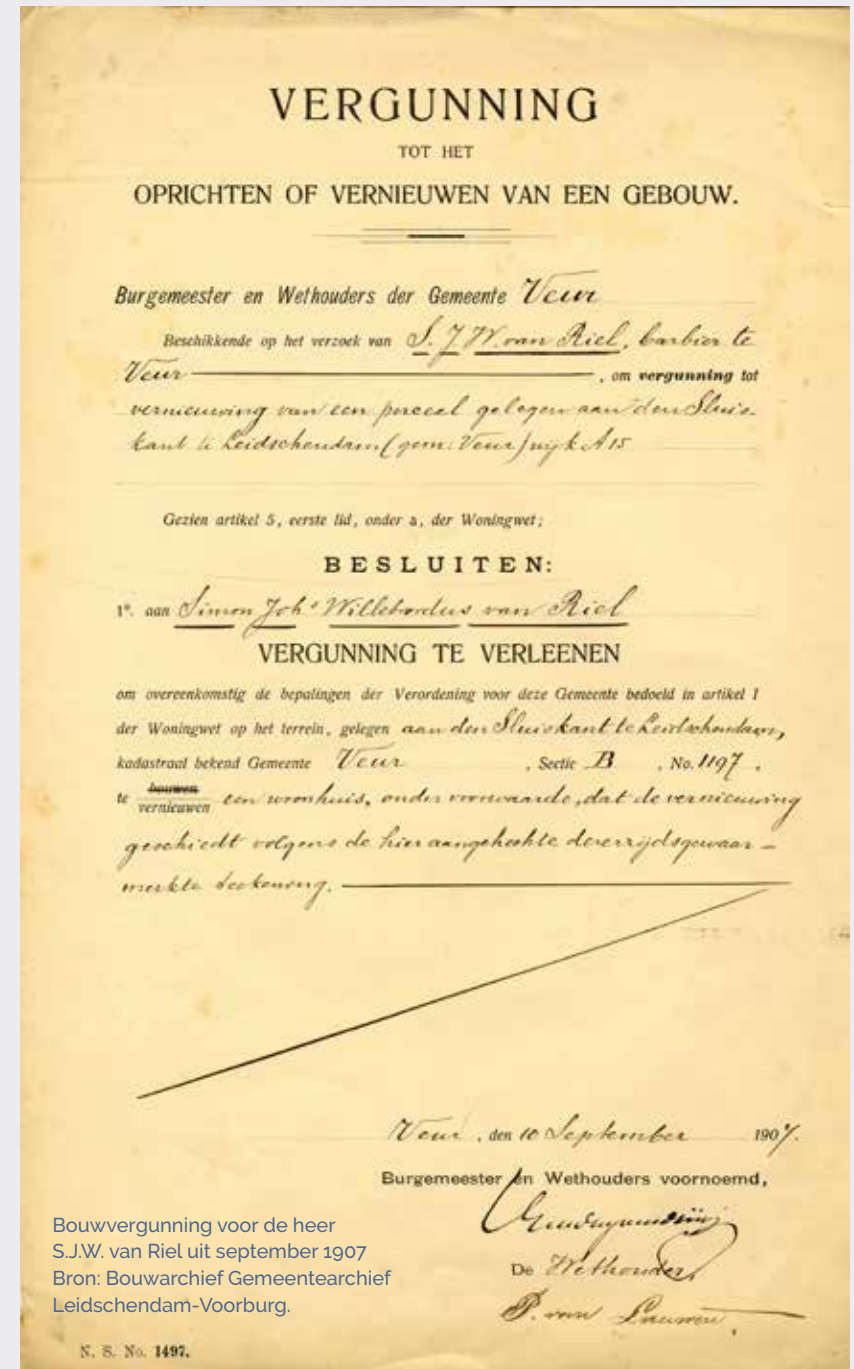 VERGUNNING
TOT HET
OPRICHTEN OF VERNIEUWEN VAN EEN GEBOUW.
Burgemeester en Wethouders der Gemeente Veur
Beschikkende op het verzoek van S. J. W. van Riel, barbier te
Veur, om vergunning tot
vernieuwing van een perceel gelegen aan den Sluis-
kant te Leidschendam (gem: Veur) wijk A 15
Gezien artikel 5, eerste lid, onder a, der Woningwet;
BESLUITEN:
1°. aan Simon Joh.s Willebordus van Riel
VERGUNNING TE VERLEENEN
om overeenkomstig de bepalingen der Verordening voor deze Gemeente bedoeld in artikel 1
der Woningwet op het terrein, gelegen aan den Sluiskant te Leidschendam,
kadastraal bekend Gemeente Veur, Sectie B, No. 1197.
te bouwen
vernieuwen een woonhuis, onder voorwaarde, dat de vernieuwing
geschiedt volgens de hier aangehechte dezerzijds gewaar-
merkte teekening.
Veur, den 10 September 1907.
Burgemeester en Wethouders voornoemd,
De Wethouder,
P. van
Bouwvergunning voor de heer
S.J.W. van Riel uit september 1907
Bron: Bouwarchief Gemeentearchief
Leidschendam-Voorburg.
N. S. No. 1497.